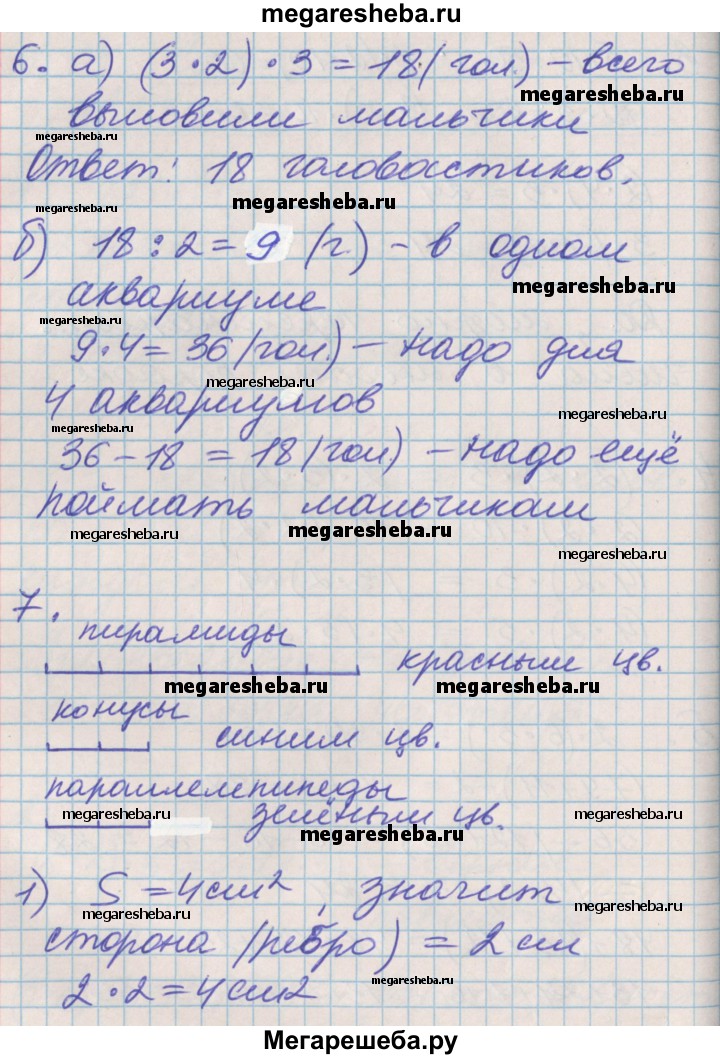 megaresheba.ru
6. а) (3·2)·3=18(гол.) – всего
megaresheba.ru
выловили мальчики
megaresheba.ru
Ответ: 18 головастиков.
megaresheba.ru
megaresheba.ru
б) 18:2=9 (г.) – в одном
megaresheba.ru
аквариуме
megaresheba.ru
9·4=36(гол.) – надо для
megaresheba.ru
4 аквариумов
megaresheba.ru
megaresheba.ru
36–18=18(гол) – надо ещё
поймать мальчикам
megaresheba.ru
megaresheba.ru
7.
пирамиды
красным цв.
megaresheba.ru
megaresheba.ru
конусы
синим цв.
параллелепипеды
зелёным цв.
megaresheba.ru
megaresheba.ru
megaresheba.ru
1) S=4см², значит
megaresheba.ru
megaresheba.ru
сторона (ребро)=2см
megaresheba.ru
2·2=4см2
Мегарешеба.ру